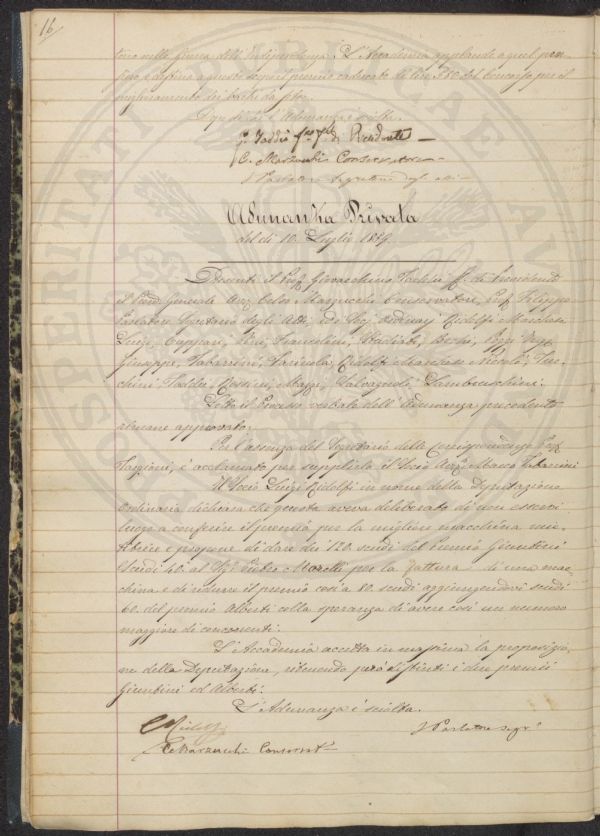 16
torio nella guerra dell'Indipendenza. L'Accademia applaude a quel
e destina a questo scopo il premio cadavato di lire 580 del concorso per il
miglioramento dei bachi da seta.
Dopo di che l'Adunanza è sciolta.
G. Taddei di Presidente
C. Marzucchi Conservatore
Parlatore Segretario degli atti
Adunanza Privata
del dì 10 Luglio 1859.
Presenti il Prof. Giovacchino Taddei ff. di Presidente
il Proc. Generale Avv. Celso Marzucchi Conservatore, Prof. Filippo
Parlatore Segretario degli Atti, ed i Sigg. Ordinarj Ridolfi Marchese
Luigi, Cuppari, Franceschini, Studiati, Bechi, Poggi Avv.
Giuseppe, Tabarrini, Ridolfi Marchese Niccolò,
chini, Taddei, Rossini, Mazzi, Salvagnoli, Lambruschini.
Letto il Processo verbale dell'Adunanza precedente
rimane approvato.
Per l'assenza del Segretario delle Corrispondenze Prof.
Targioni, è acclamato per supplirlo il Socio Avv. Marco Tabarrini
Il Socio Luigi Ridolfi in nome della Deputazione
Ordinaria dichiara che questa aveva deliberato di non esservi
luogo a conferire il premio per la migliore macchina mie-
titrice e propone di dare dei 120 scudi del Premio Giuntini
Scudi 40 al Sig. Pietro Morelli per la fattura di una mac-
china e di ridurre il premio così a 80 scudi aggiungendovi scudi
60 del premio Alberti colla speranza di avere così un numero
maggiore di concorrenti.
L'Accademia accetta in massima la proposizio-
ne della Deputazione, ritenendo però distinti i due premii
Giuntini ed Alberti.
L'Adunanza è sciolta.
C Ridolfi
Parlatore Segr.
C. Marzucchi Conservat.